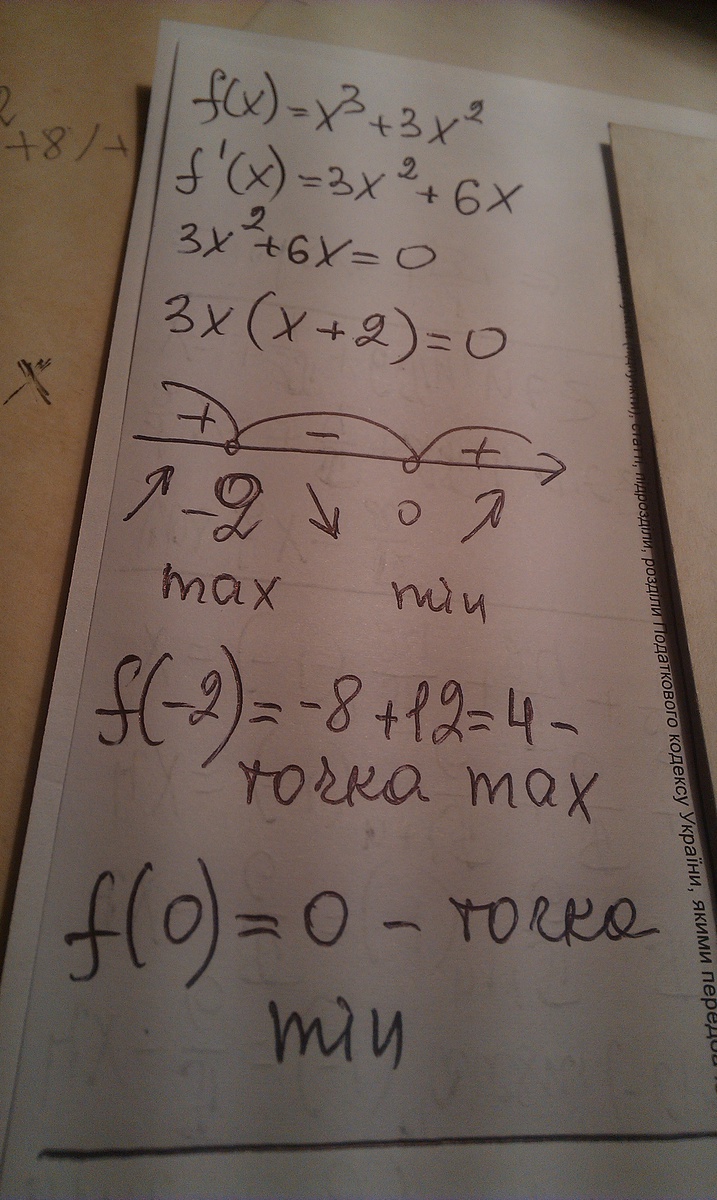 f(x)=x³+3x²
f'(x)=3x²+6x
3x²+6x=0
3x(x+2)=0
+ - +
-2 0
max min
f(-2)=-8+12=4-
точка max
f(0)=0 - точка
min
+8/+
x
статті, підрозділи, розділи Податкового кодексу України, якими